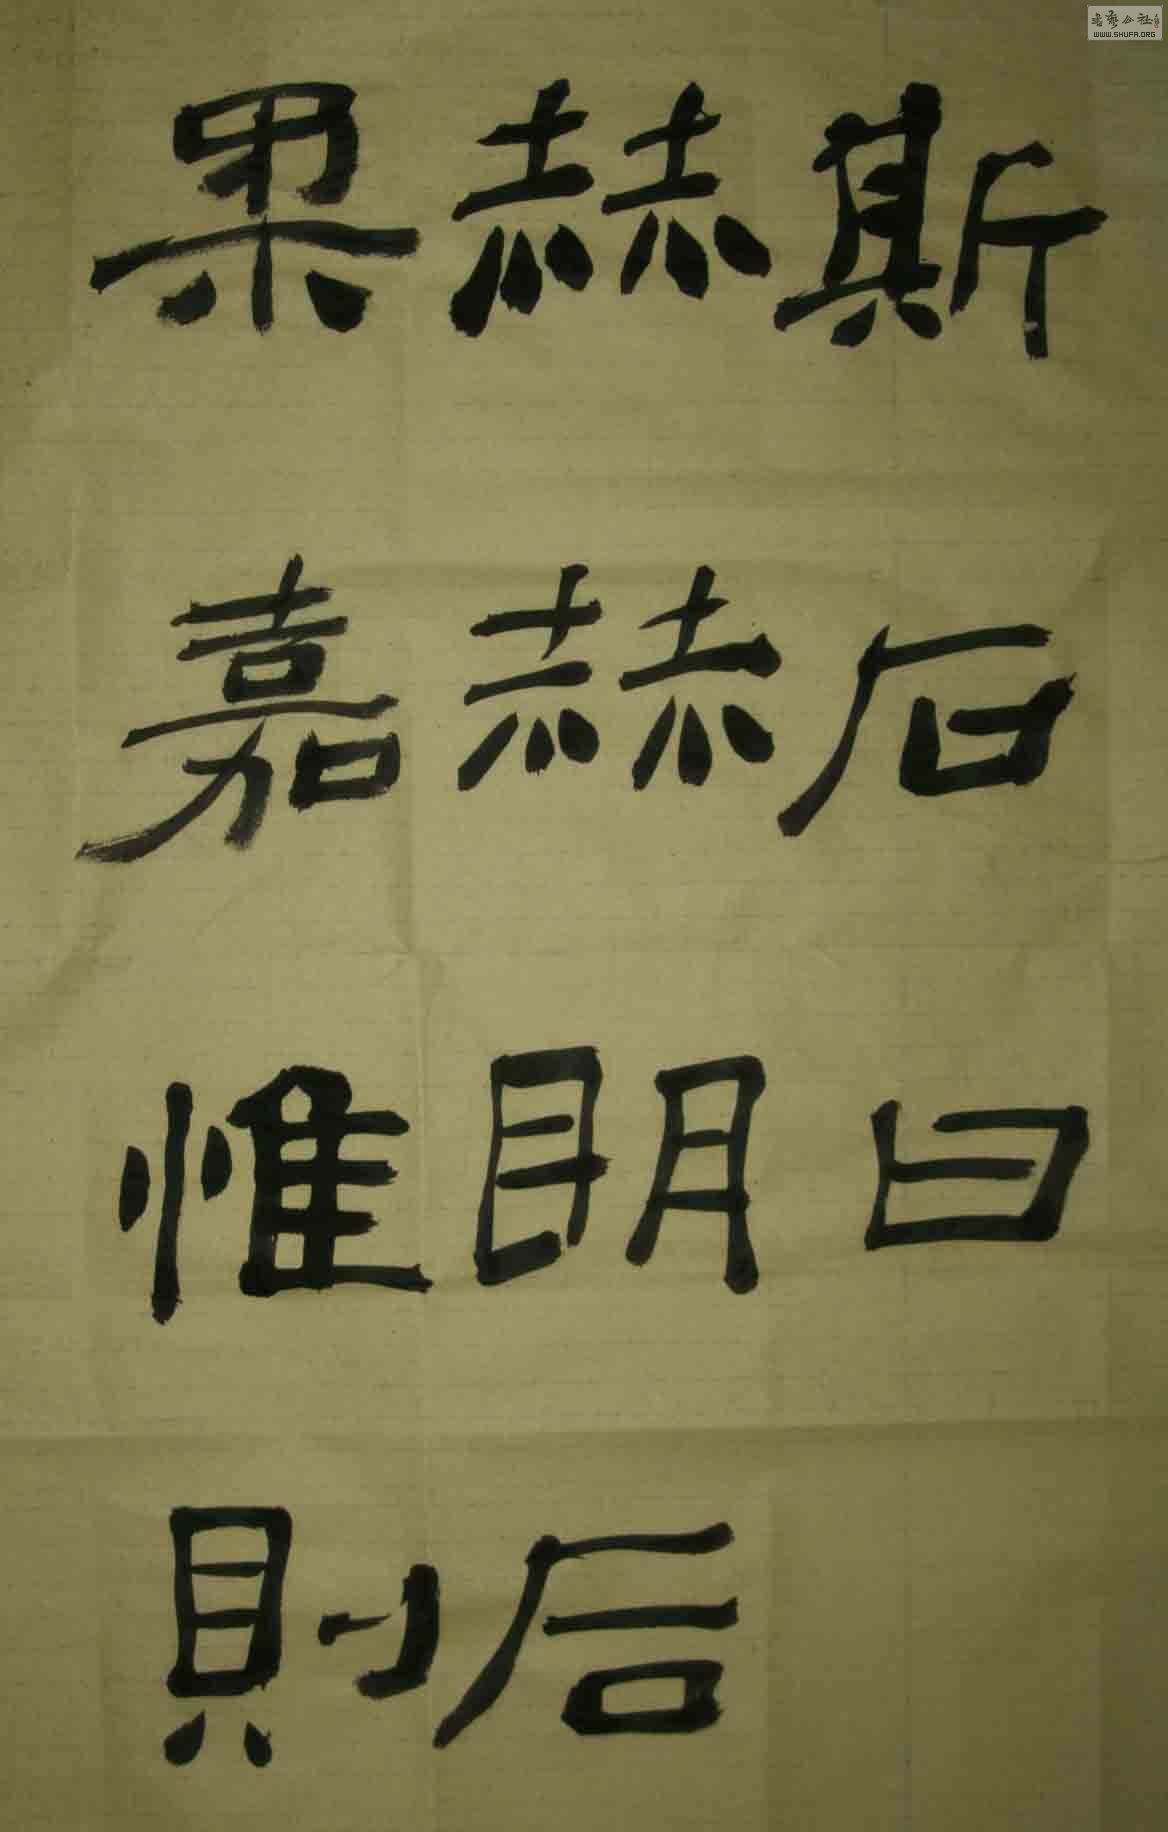 斯石曰
赫赫明后
柔嘉惟則
书艺公社
WWW.SHUFA.ORG